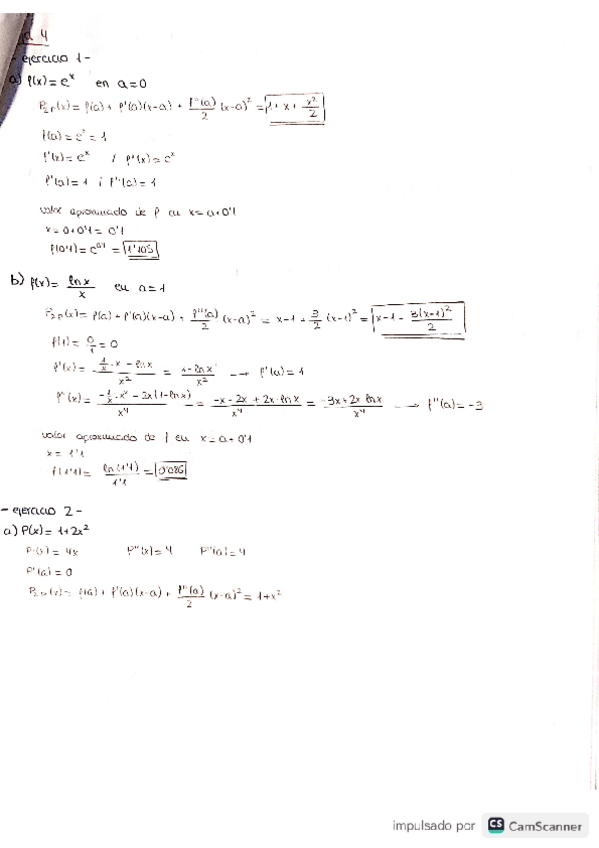 a 4
- ejercicio 1 -
a) f(x) = e^x en a = 0
P₂,f(x) = f(a) + f'(a)(x-a) + f''(a)/2 (x-a)² = 1 + x + x²/2
f(a) = e° = 1
f'(x) = e^x / f''(x) = e^x
f'(a) = 1 ; f''(a) = 1
valor aproximado de f en x = a + 0'1
x = 0 + 0'1 = 0'1
f(0'1) = e^0'1 = 1'105
b) f(x) = ln x / x en a = 1
P₂,f(x) = f(a) + f'(a)(x-a) + f''(a)/2 (x-a)² = x - 1 + 3/2 (x-1)² = x - 1 - 3(x-1)²/2
f(1) = 0/1 = 0
f'(x) = (1/x · x - ln x)/x² = (1 - ln x)/x² → f'(a) = 1
f''(x) = (-1/x · x² - 2x(1 - ln x))/x⁴ = (-x - 2x + 2x · ln x)/x⁴ = (-3x + 2x ln x)/x⁴ → f''(a) = -3
valor aproximado de f en x = a + 0'1
x = 1'1
f(1'1) = ln(1'1)/1'1 = 0'086
- ejercicio 2 -
a) P(x) = 1 + 2x²
P'(x) = 4x P''(x) = 4 P''(a) = 4
P'(a) = 0
P₂,f(x) = f(a) + f'(a)(x-a) + f''(a)/2 (x-a)² = 1 + x²
impulsado por CS CamScanner